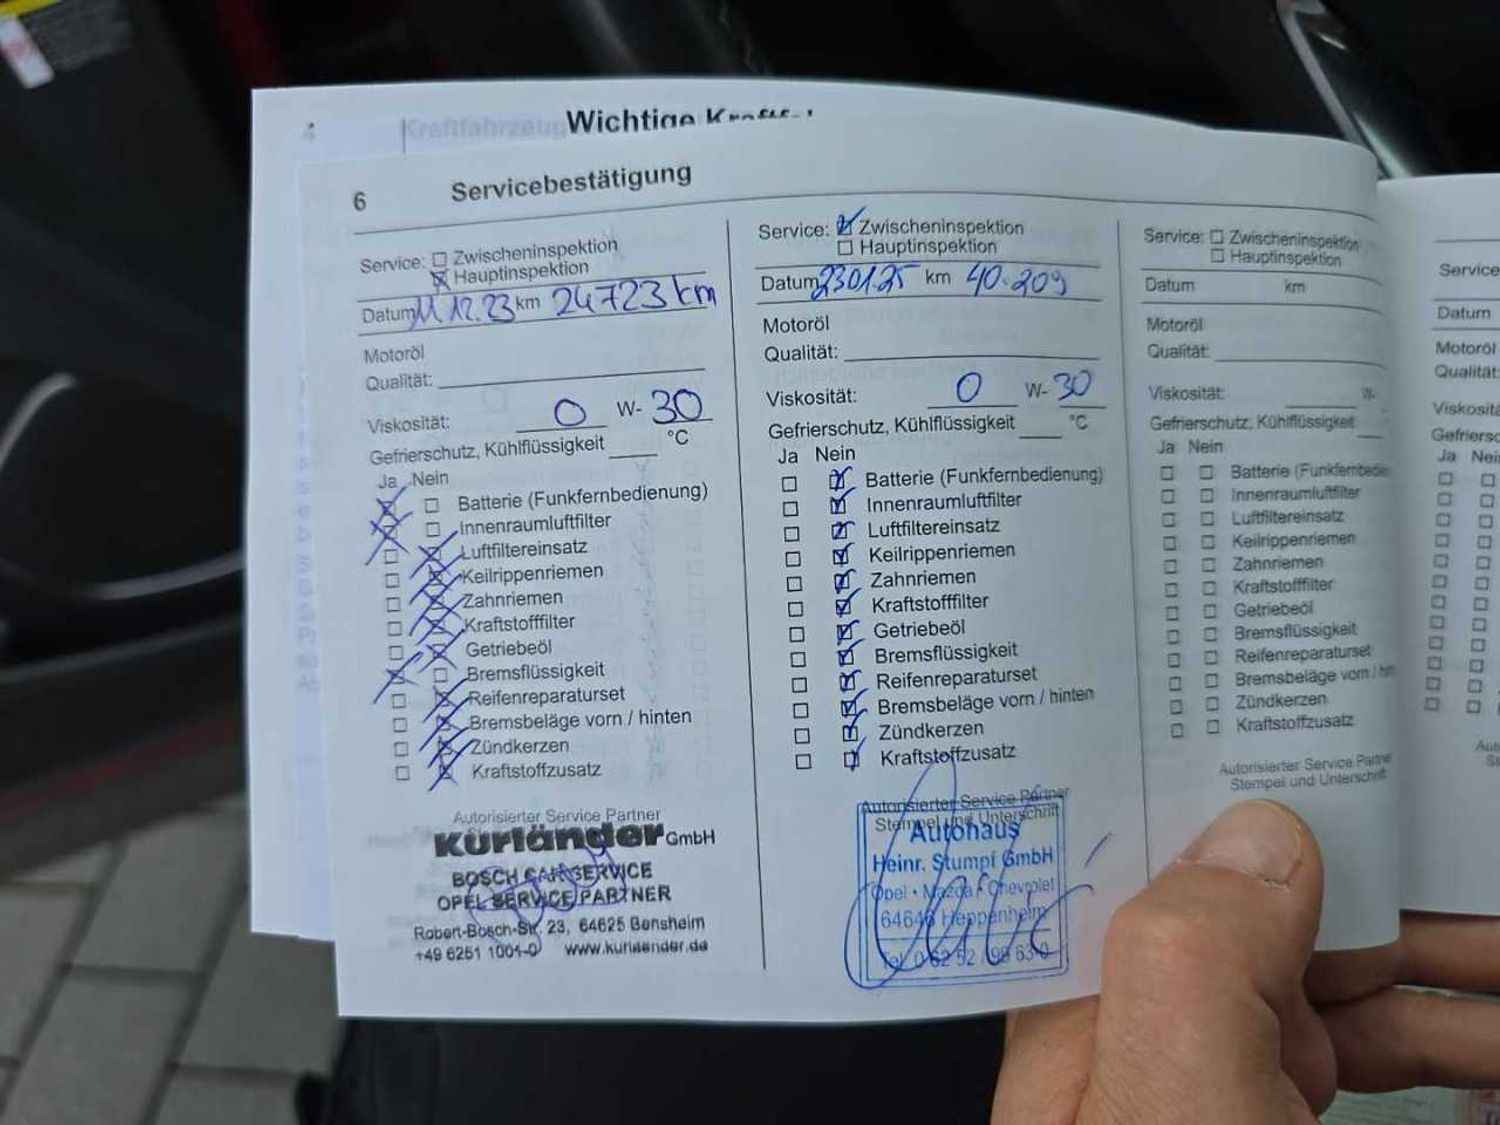 4
Kraftfahrzeug
Wichtige
6 Servicebestätigung
Service: Zwischeninspektion
Hauptinspektion
Datum 11.12.23 km 24723 km
Motoröl
Qualität:
Viskosität: 0 W- 30
Gefrierschutz, Kühlflüssigkeit °C
Ja Nein
Batterie (Funkfernbedienung)
Innenraumluftfilter
Luftfiltereinsatz
Keilrippenriemen
Zahnriemen
Kraftstofffilter
Getriebeöl
Bremsflüssigkeit
Reifenreparaturset
Bremsbeläge vorn / hinten
Zündkerzen
Kraftstoffzusatz
Autorisierter Service Partner
Kurländer GmbH
BOSCH CAR SERVICE
OPEL SERVICE PARTNER
Robert-Bosch-Str. 23, 64625 Bensheim
+49 6251 1001-0 www.kurlaender.de
Service: Zwischeninspektion
Hauptinspektion
Datum 23.01.25 km 40.209
Motoröl
Qualität:
Viskosität: 0 W- 30
Gefrierschutz, Kühlflüssigkeit °C
Ja Nein
Batterie (Funkfernbedienung)
Innenraumluftfilter
Luftfiltereinsatz
Keilrippenriemen
Zahnriemen
Kraftstofffilter
Getriebeöl
Bremsflüssigkeit
Reifenreparaturset
Bremsbeläge vorn / hinten
Zündkerzen
Kraftstoffzusatz
Autorisierter Service Partner
Stempel und Unterschrift
Autohaus
Heinr. Stumpf GmbH
Opel • Mazda • Chevrolet
64646 Heppenheim
Tel. 0 62 52 / 99 63-0
Service: Zwischeninspektion
Hauptinspektion
Datum km
Motoröl
Qualität:
Viskosität: W-
Gefrierschutz, Kühlflüssigkeit
Ja Nein
Batterie (Funkfernbedie
Innenraumluftfilter
Luftfiltereinsatz
Keilrippenriemen
Zahnriemen
Kraftstofffilter
Getriebeöl
Bremsflüssigkeit
Reifenreparaturset
Bremsbeläge vorn / hin
Zündkerzen
Kraftstoffzusatz
Autorisierter Service Partne
Stempel und Unterschrift
Service
Datum
Motoröl
Qualität:
Viskosität
Gefriersc
Ja Nei